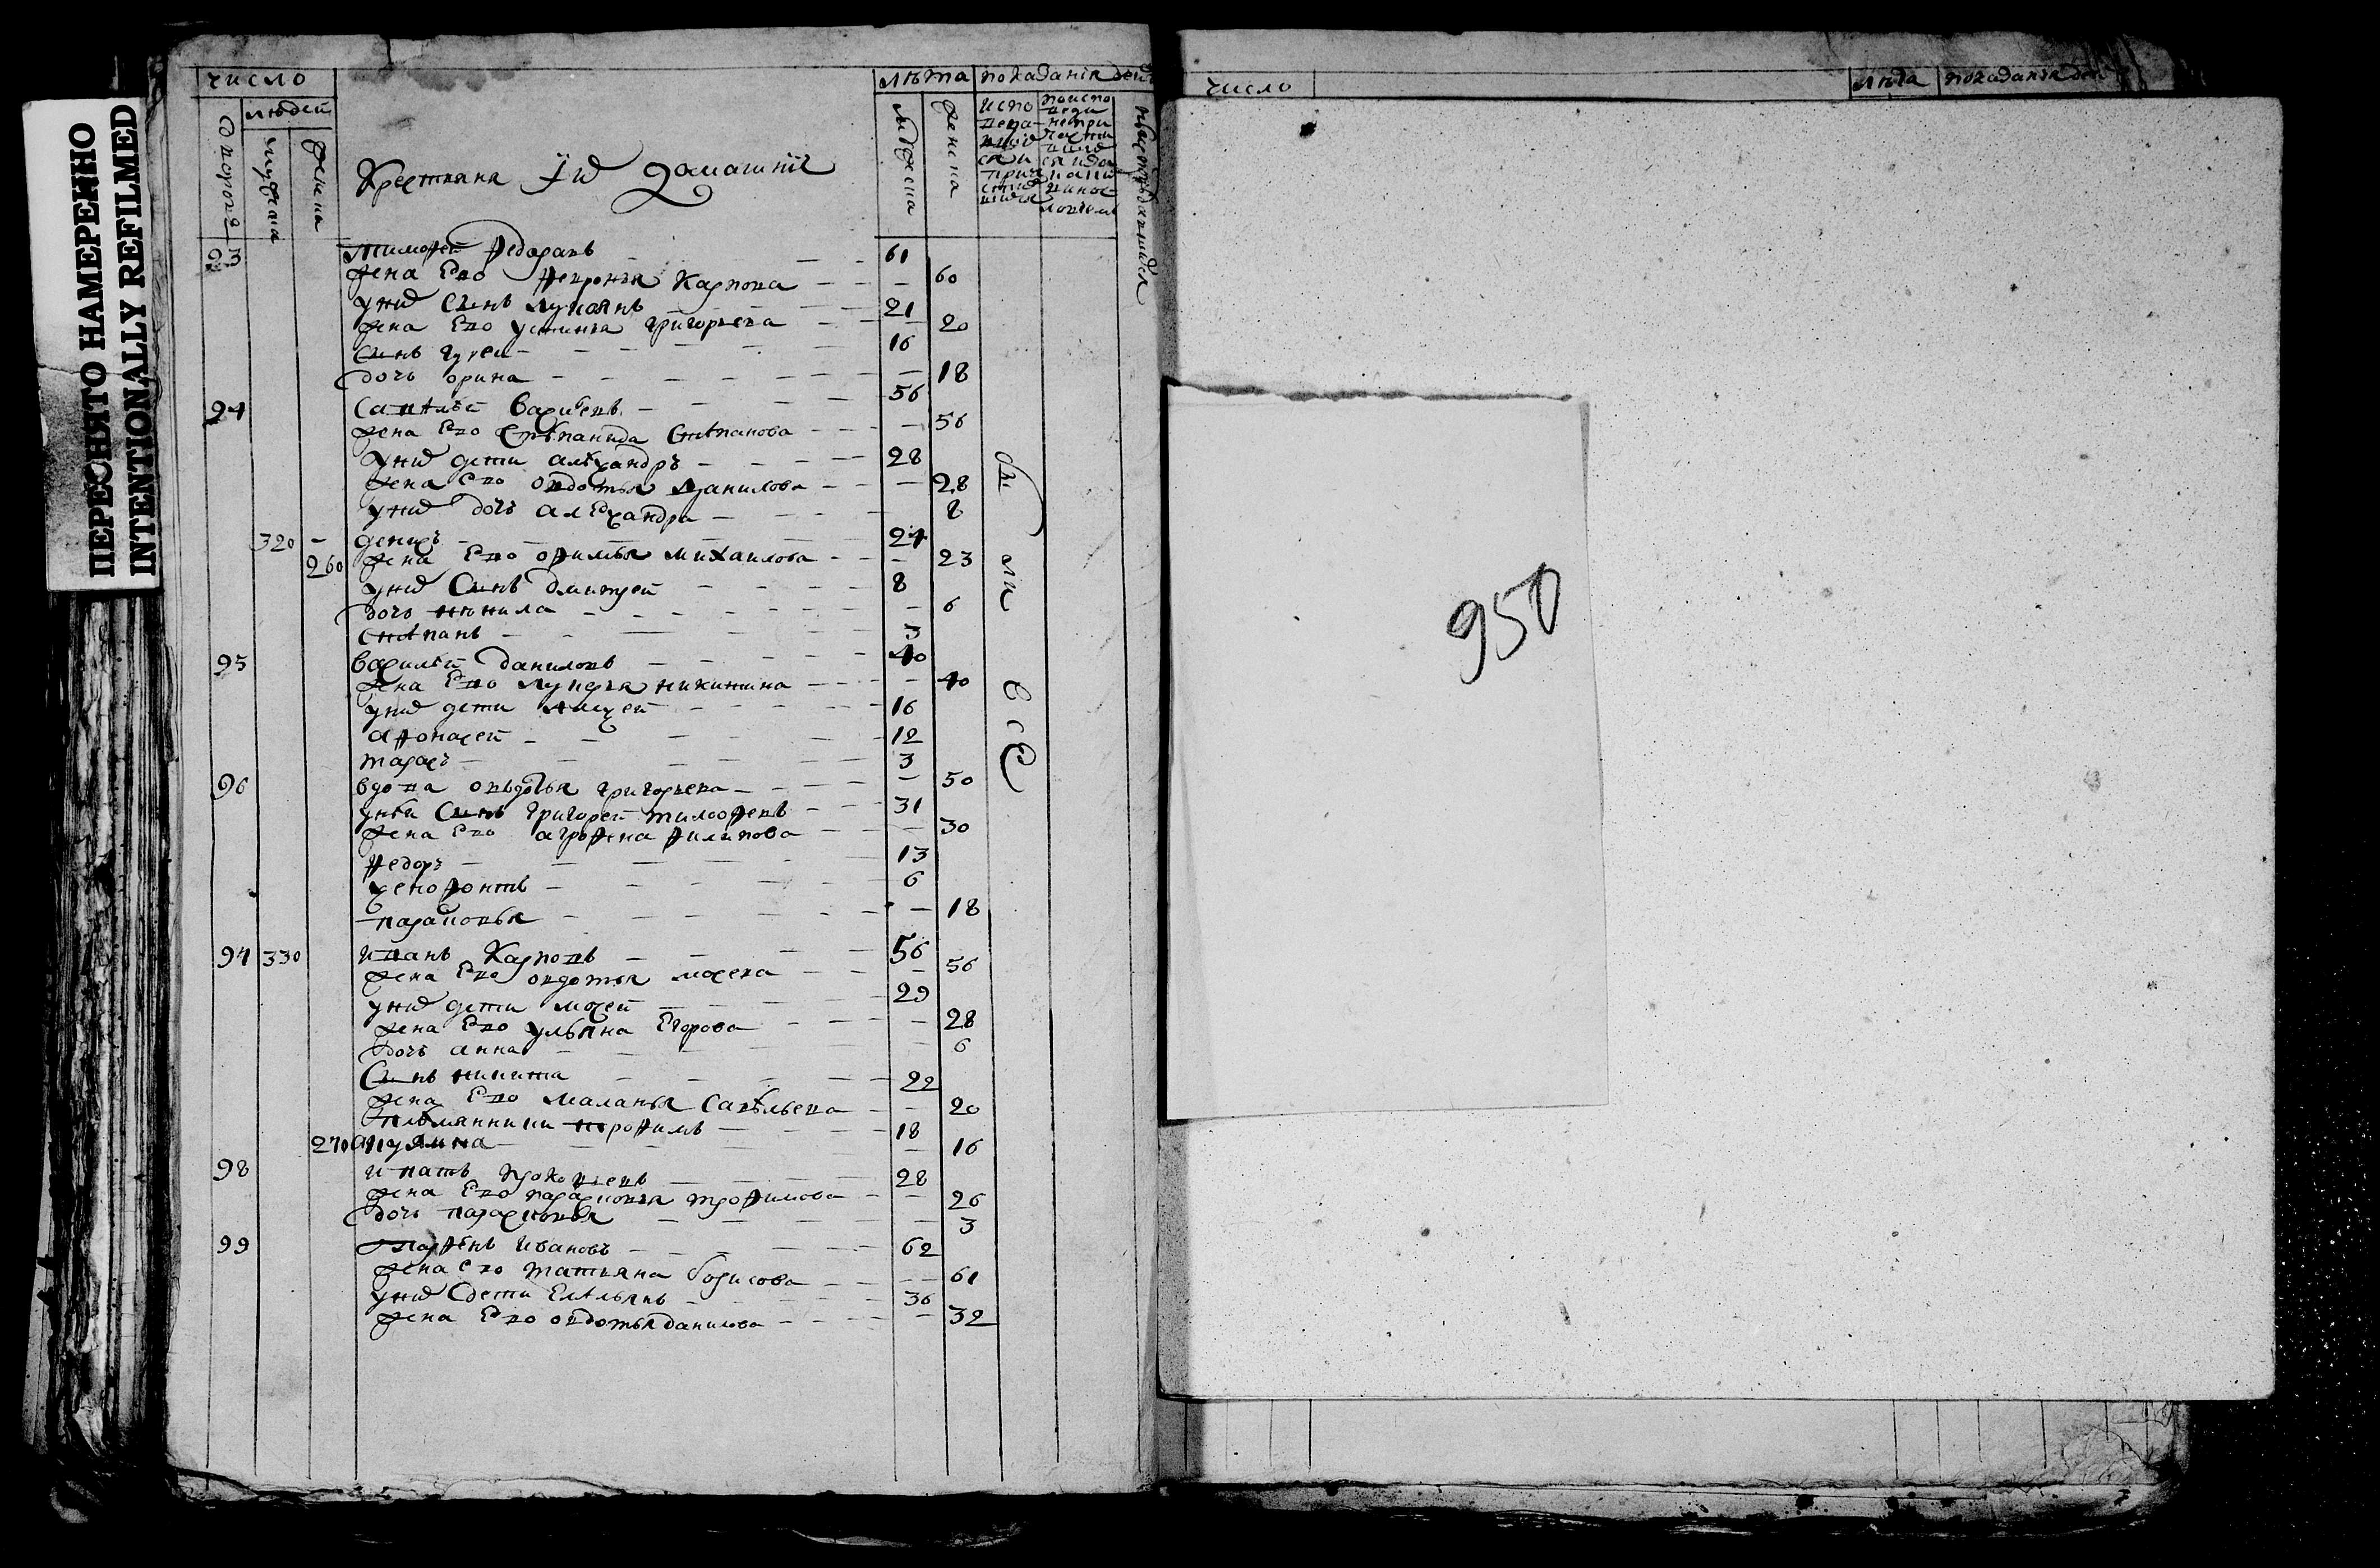 ПЕРЕСНЯТО НАМЕРЕННО
INTENTIONALLY REFILMED
число
людей
дворовъ
мужеска
женска
лѣта
показанія
мужеска
женска
Крестьяне и домашнїе
93 тимофеи федоровъ 61
жена ево февронья карпова 60
у нихъ сынъ лукоянъ 21
жена ево устинья григорьева 20
сынъ гуреи 16
дочь орина 18
94 савѣлѣи васильевъ 56
жена ево стѣпанида стѣпанова 56
у нихъ дети алѣксандръ 28
жена ево овдотья данилова 28
у нихъ дочь алеѯандра 8
320 денисъ 24
260 жена ево офимья михаилова 23
у нихъ сынъ дмитреи 8
дочь ненила 6
стѣпанъ
95 василѣи даниловъ 40
жена ево лукерья никитина 40
у нихъ дети 16
афонасеи 12
тарасъ 3
96 вдова овьдотья григорьева 50
у неи сынъ григореи тимофѣевъ 31
жена ево агрофена филипова 30
федоръ 13
ѯенофонтъ 6
парасковья 18
97 330 иванъ карповъ 56
жена ево овдотья мосеева 56
у нихъ дети мосеи 29
жена ево ульяна егорова 28
дочь анна 6
сынъ никита 22
жена ево маланья савѣльева 20
племянники трофимъ 18
270 акулина 16
98 игнатъ прокофьевъ 28
жена ево парасковья трофимова 26
дочь парасковья 3
99 парфенъ ивановъ 62
жена ево татьяна борисова 61
у нихъ дети емѣльянъ 36
жена ево овдотья данилова 32
число
лѣта
показанія
950